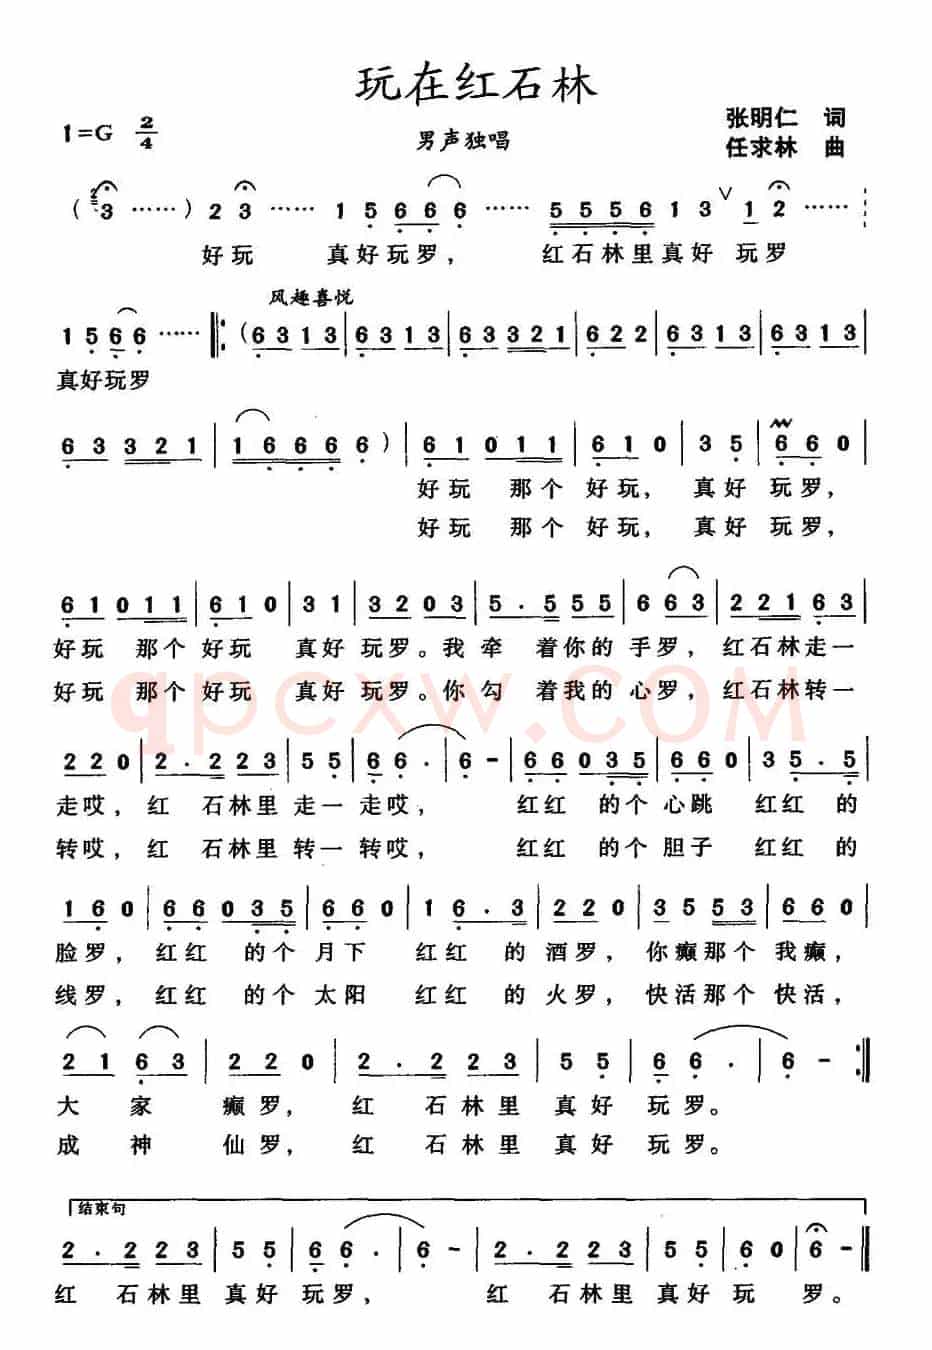 玩在红石林
1=G 2/4
男声独唱
张明仁 词
任求林 曲
( 2 3 …… ) 2 3 …… 1 5 6 6 6 …… 5 5 5 6 1 3 ∨ 1 2 ……
好玩 真好玩罗， 红石林里真好 玩罗
风趣喜悦
1 5 6 6 …… ‖: ( 6 3 1 3 | 6 3 1 3 | 6 3 3 2 1 | 6 2 2 | 6 3 1 3 | 6 3 1 3 |
真好玩罗
6 3 3 2 1 | 1 6 6 6 6 ) | 6 1 0 1 1 | 6 1 0 | 3 5 | 6 6 0 |
好玩 那个 好玩， 真好 玩罗，
好玩 那个 好玩， 真好 玩罗，
6 1 0 1 1 | 6 1 0 | 3 1 | 3 2 0 3 | 5 . 5 5 5 | 6 6 3 | 2 2 1 6 3 |
好玩 那个 好玩 真好 玩罗。我 牵 着你的 手罗， 红石林走一
好玩 那个 好玩 真好 玩罗。你 勾 着我的 心罗， 红石林转一
qpcxw.COM
2 2 0 | 2 . 2 2 3 | 5 5 | 6 6 . | 6 - | 6 6 0 3 5 | 6 6 0 | 3 5 . 5 |
走哎， 红 石林里 走一 走哎， 红红 的个 心跳 红红 的
转哎， 红 石林里 转一 转哎， 红红 的个 胆子 红红 的
1 6 0 | 6 6 0 3 5 | 6 6 0 | 1 6 . 3 | 2 2 0 | 3 5 5 3 | 6 6 0 |
脸罗， 红红 的个 月下 红红 的 酒罗， 你癫那个 我癫，
线罗， 红红 的个 太阳 红红 的 火罗， 快活那个 快活，
2 1 6 3 | 2 2 0 | 2 . 2 2 3 | 5 5 | 6 6 . | 6 - :‖
大 家 癫罗， 红 石林里 真好 玩罗。
成 神 仙罗， 红 石林里 真好 玩罗。
结束句
2 . 2 2 3 | 5 5 | 6 6 . | 6 - | 2 . 2 2 3 | 5 5 | 6 0 | 6 - ‖
红 石林里 真好 玩罗， 红 石林里 真好 玩 罗。